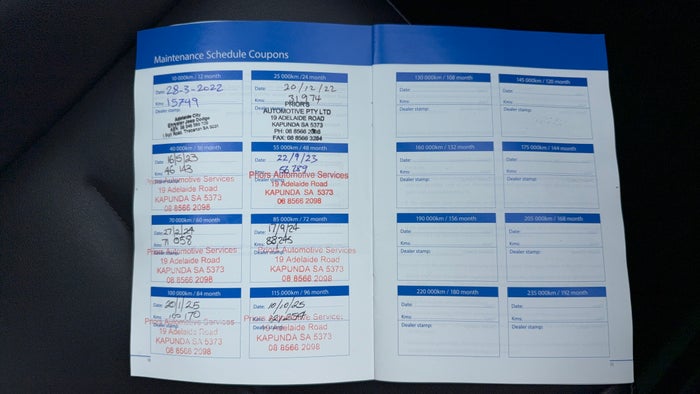 Maintenance Schedule Coupons
10 000km / 12 month
Date: 28-3-2022
Kms: 15749
Dealer stamp:
Adelaide City
Chrysler Jeep Dodge
25 000km / 24 month
Date: 20/12/22
Kms: 31974
Dealer stamp:
PRIOR'S
AUTOMOTIVE PTY LTD
19 ADELAIDE ROAD
KAPUNDA SA 5373
PH: 08 8566
FAX: 08 8566
40 000km / 36 month
Date: 16/5/23
Kms: 46 143
Priors Automotive Services
19 Adelaide Road
KAPUNDA SA 5373
08 8566 2098
55 000km / 48 month
Date: 22/9/23
Kms:
Priors Automotive Services
19 Adelaide Road
KAPUNDA SA 5373
08 8566 2098
70 000km / 60 month
Date: 27/2/24
Kms: 71 058
Priors Automotive Services
19 Adelaide Road
KAPUNDA SA 5373
08 8566 2098
85 000km / 72 month
Date: 17/9/24
Kms: 88245
Priors Automotive Services
19 Adelaide Road
KAPUNDA SA 5373
08 8566 2098
100 000km / 84 month
Date: 20/1/25
Kms: 100 170
Priors Automotive Services
Dealer stamp:
19 Adelaide Road
KAPUNDA SA 5373
08 8566 2098
115 000km / 96 month
Date: 10/10/25
Kms:
Priors Automotive Services
Dealer stamp:
19 Adelaide Road
KAPUNDA SA 5373
08 8566 2098
130 000km / 108 month
Date:
Kms:
Dealer stamp:
145 000km / 120 month
Date:
Kms:
Dealer stamp:
160 000km / 132 month
Date:
Kms:
Dealer stamp:
175 000km / 144 month
Date:
Kms:
Dealer stamp:
190 000km / 156 month
Date:
Kms:
Dealer stamp:
205 000km / 168 month
Date:
Kms:
Dealer stamp:
220 000km / 180 month
Date:
Kms:
Dealer stamp:
235 000km / 192 month
Date:
Kms:
Dealer stamp: